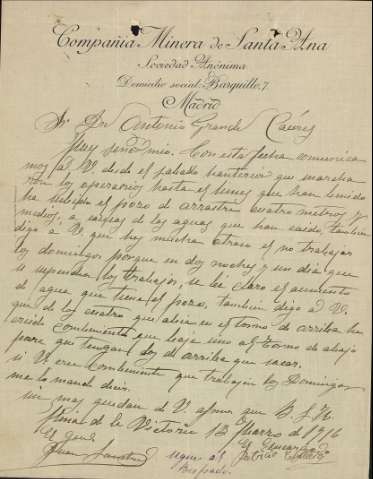 Compañia Minera de Santa Ana
Sociedad Anónima
Domicilio social: Barquillo, 7
Madrid
Sr Dn Antonio Grande Cáceres
Muy señor mio. Con esta fecha comunica
mos al V. desde el sabado que marcha
ron los operarios hasta el lunes que han benido
ha subido el pozo de arrastre cuatro metros y
medios, a causa de las aguas que han caido, tambien
digo a V. que hay mucha atraso el no trabajar
los domingos porque en dos noches y un dia que
se suspenden los trabajos, se be claro el aumento
de agua que tiene el pozo, tambien digo a V.
que de los cuatro que abia en el torno de arriba he
creido combeniente que baje uno al torno de abajo
para que tengan los de arriba que sacar.
si V. cree combeniente que trabajen los Domingos
me lo mande decir.
sin mas quedan de V. afmos que B. S. M.
Mina de la Victoria 13 Marzo de 1916
El guarda
Juan
sigue al